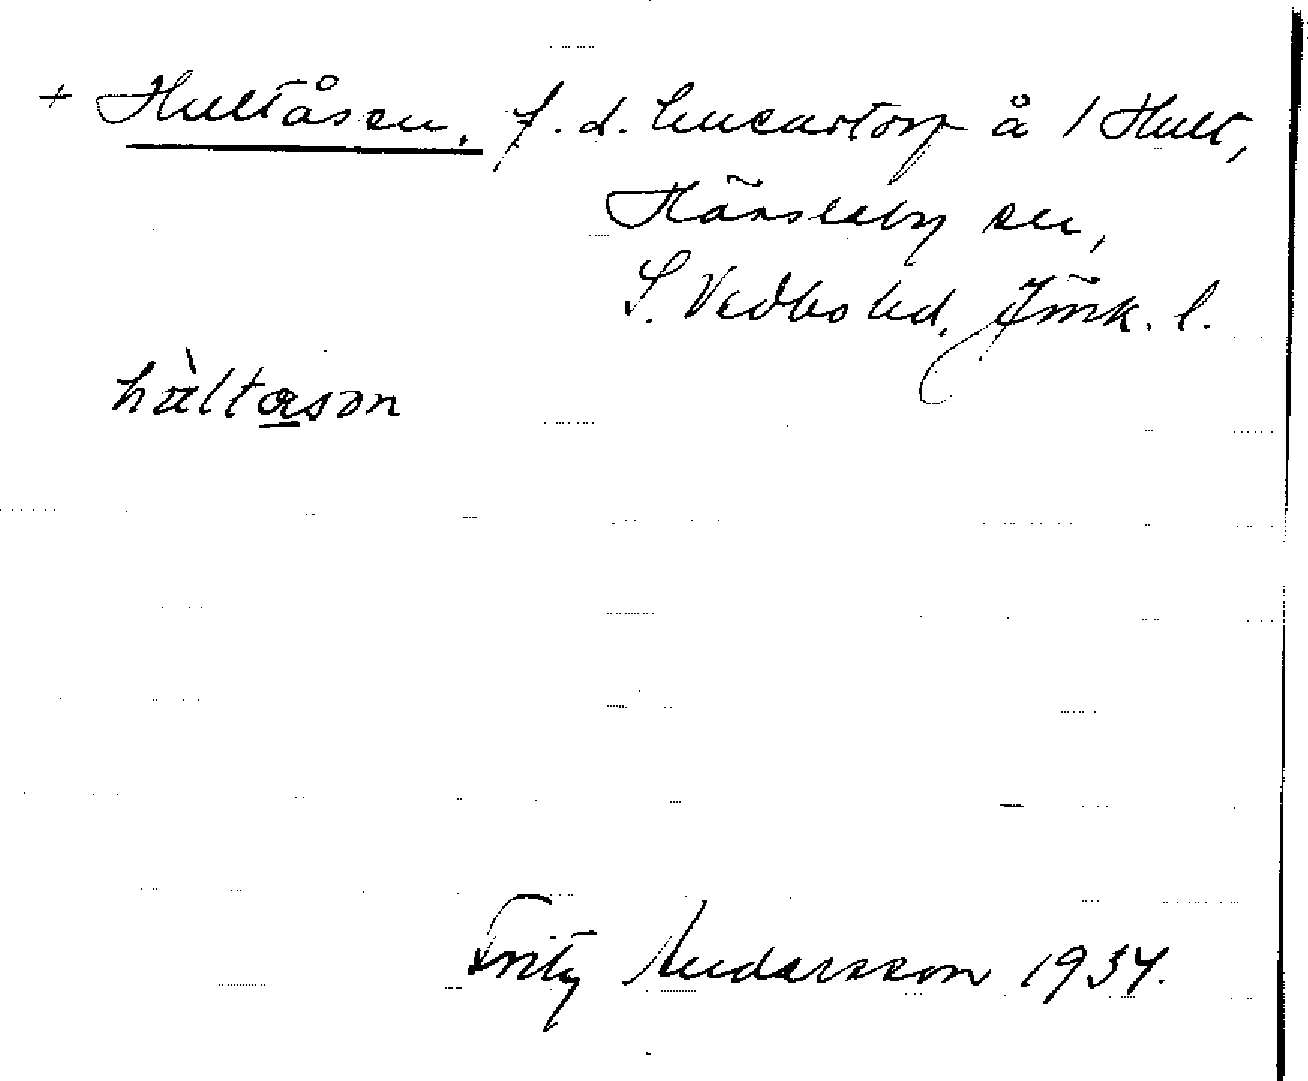 + Hultåsen, f.d. lucastorp å / Hult,
Hässleby sn,
S. Vedbo hd, Jönk. l.
hàltasən
Fritz Andersson 1934.